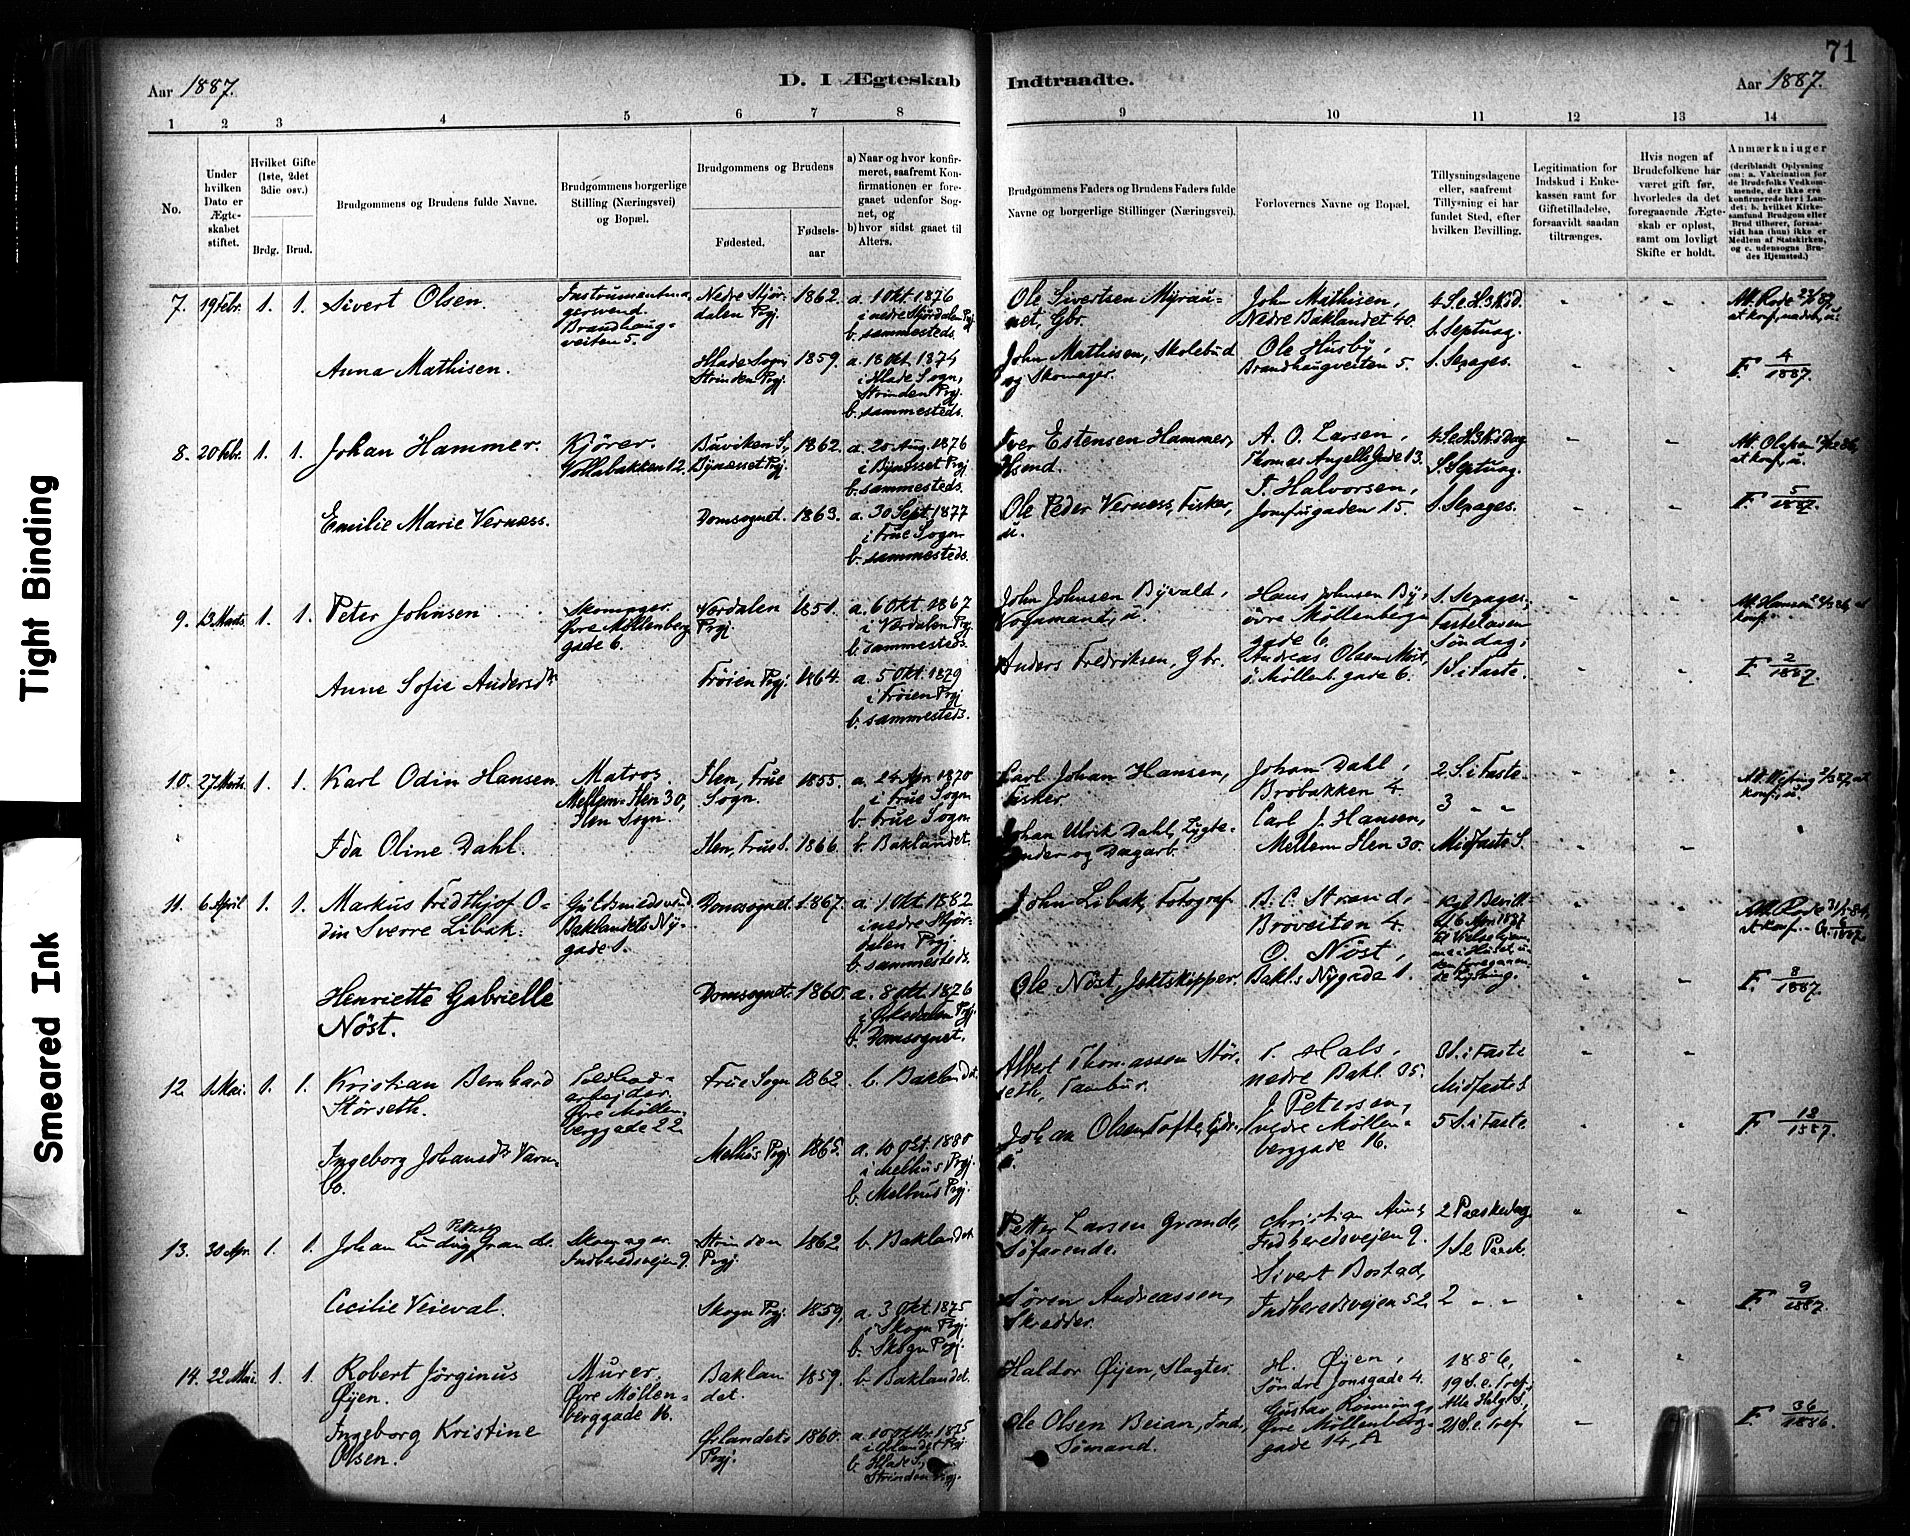 71
Aar 1887.
D. I Ægteskab Indtraadte.
Aar 1887.
1 2 3 4 5 6 7 8 9 10 11 12 13 14
No.
Under hvilken Dato er Ægteskabet stiftet.
Hvilket Gifte (1ste, 2det 3die osv.)
Brdg. Brud.
Brudgommens og Brudens fulde Navne.
Brudgommens borgerlige Stilling (Næringsvei) og Bopæl.
Brudgommens og Brudens
Fødested.
Fødselsaar
a) Naar og hvor konfirmeret, saafremt Konfirmationen er foregaaet udenfor Sognet, og
b) hvor sidst gaaet til Alters.
Brudgommens Faders og Brudens Faders fulde Navne og borgerlige Stillinger (Næringsvei).
Forlovernes Navne og Bopæl.
Tillysningsdagene eller, saafremt Tillysning ei har fundet Sted, efter hvilken Bevilling.
Legitimation for Indskud i Enkekassen samt for Giftetilladelse, forsaavidt saadan tiltrænges.
Hvis nogen af Brudefolkene har været gift før, hvorledes da det foregaaende Ægteskab er opløst, samt om lovligt Skifte er holdt.
Anmærkninger
(deriblandt Oplysning om: a. Vakcination for de Brudefolks Vedkommende, der ikke ere konfirmerede her i Landet; b. hvilket Kirkesamfund Brudgom eller Brud tilhører, forsaavidt han (hun) ikke er Medlem af Statskirken, og c. udensogns Brudes Hjemsted.)
7. 19 Febr. 1. 1. Sivert Olsen. Brandhaugveiten 5. Nedre Stjørdalen Prgj. 1862. a. 1 Okt. 1876 i nedre Stjørdalen Prgj b. sammesteds. Ole Sivertsen Gbr. John Mathisen, Nedre Baklandet 40. S. Septuag.
Anna Mathisen. Hlade Sogn Strinden Prgj. 1859. a. 18 Okt. 1874 i Hlade Sogn, Strinden Prgj. b. sammesteds. John Mathisen, og Skomager. Ole Husby, Brandhaugveiten 5. S. Sexages. F. 4/1887.
8. 20 Febr. 1. 1. Johan Hammer. Kjører. Vollabakken 12. Buviken S., Bynæsset Prgj. 1862. a. 20 Aug. 1876 i Bynæsset Prgj b. sammesteds. Iver Estensen Hammer, Hsmd. A. O. Larsen, Thomas Angells Gade 13. S. Septuag.
Emilie Marie Vernæss. Domsognet. 1863. a. 30 Sept. 1877 i Frue Sogn. b. sammesteds. Ole Peder Vernæss, Fisker, u. J. Halvorsen, Jomfrugaden 15. S. Sexages. F. 5/1887.
9. 13 Marts. 1. 1. Peter Johnsen Skomager. Øvre Møllenberg gade 6. Værdalen Prgj 1851. a. 6 Okt. 1867 i Værdalen Prgj b. sammesteds. John Johnsen Byvald, u. Hans Johnsen By, øvre Møllenberg gade 6. S. Sexages., Fastelavens Søndag,
Anne Sofie Andersdtr. Frøien Prgj. 1864. a. 5 Okt. 1879 i Frøien Prgj b. sammesteds. Anders Fredriksen, Gbr. Andreas Olsen i Møllenb. gade 6. 1 S. i Faste. F. 2/1887.
10. 27 Marts. 1. 1. Karl Odin Hansen Matros. Mellem-Ilen 30, Ilen Sogn. Ilen, Frue Sogn. 1855. a. 24 Apr. 1870 i Frue Sogn b. Frue Sogn. Carl Johan Hansen, Fisker. Johan Dahl, Brobakken 4. 2 S. i Faste. 3 " "
Ida Oline Dahl. Ilen, Frue S. 1866. b. Baklandet. Johan Ulrik Dahl, Lygtetænder og Dagarb. Carl J. Hansen, Mellem Ilen 30. Midfaste S.
11. 6 April 1. 1. Markus Fridthjof Odin Sverre Libak. Guldsmedsvend. Baklandets Nygade 1. Domsognet. 1867. a. 1 Okt. 1882 i nedre Stjørdalen Prgj. b. sammesteds. John Libak, Fotograf B. C. Strand, Brøveiten 4. Kgl. Bevill. af 6 Apr. 1887
Henriette Gabrielle Nöst. Domsognet. 1860. a. 8 Okt. 1876 i Prgj. b. Domsognet. Ole Nöst, Jektskipper. O. Nöst, Bakl.s Nygade 1. F. 8/1887
12. 1 Mai. 1. 1. Kristian Bernhard Störseth. arbejder. Øvre Møllenberggade 22. Frue Sogn 1862. b. Baklandet. Albert Thomassen Störseth, Tambur. T. Hals, nedre Bakl. 35. 3 S. i Faste Midfaste S.
Ingeborg Johansdtr. Melhus Prgj. 1865. a. 10 Okt. 1880 i Melhus Prgj. b. Melhus Prgj. Johan Olsen Tofte, Gbr., u. J. Petersen, øvre Møllenberggade 16. 5 S. i Faste F. 13/1887.
13. 30 Apr. 1. 1. Johan Ludvig Petter Grande. Skomager. Indheredsvejen 9. Strinden Prgj 1862. b. Baklandet. Petter Larsen Grande, Søfarende. Christian Aune, Indheredsvejen 9. 2 Paaskedag 1 S. e. Paask.
Cecilie Veieval. Skogn Prgj. 1859, a. 3 Okt. 1875 i Skogn Prgj. b. Skogn Prgj. Søren Andreassen, Skrædder. Sivert Bostad, Indheredsvejen 52. 2 " " F. 9/1887.
14. 22 Mai. 1. 1. Robert Jörginus Öyen. Murer. Øvre Møllenberggade 16. Baklandet. 1859. b. Baklandet. Haldor Öyen, Slagter. H. Öyen, Søndre Jonsgade 4. 1886, 19 S. e. Tref. Alle Helg. S.,
Ingeborg Kristine Olsen. Ørlandet Prgj. 1860. a. 10 Oktbr. 1875 i Ørlandet Prgj b. Hlade S., Strinden Prgj. Ole Olsen Beian, Ind., Sømand. Gustav Rønning, Øvre Møllenberggade 14, A 21 S. e. Tref. F. 36/1886.
Tight Binding
Smeared Ink